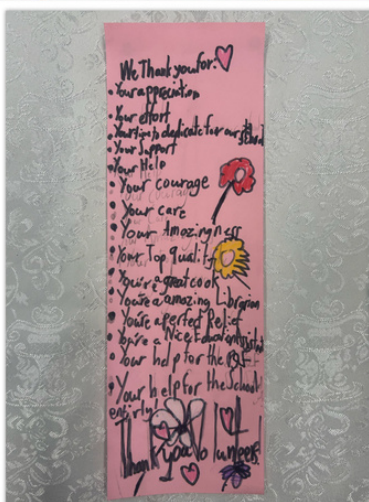 We Thank you for:
• Your appreciation
• Your effort
• Your time to dedicate for our school
• Your Support
• Your Help
• Your courage
• Your care
• Your Amazingness
• Your Top quality
• You're a great cook
• You're a amazing Librarian
• You're a perfect Relief
• You're a Nice Education
• Your help for the
• Your help for the School
entirly!
Thank you Volunteers!